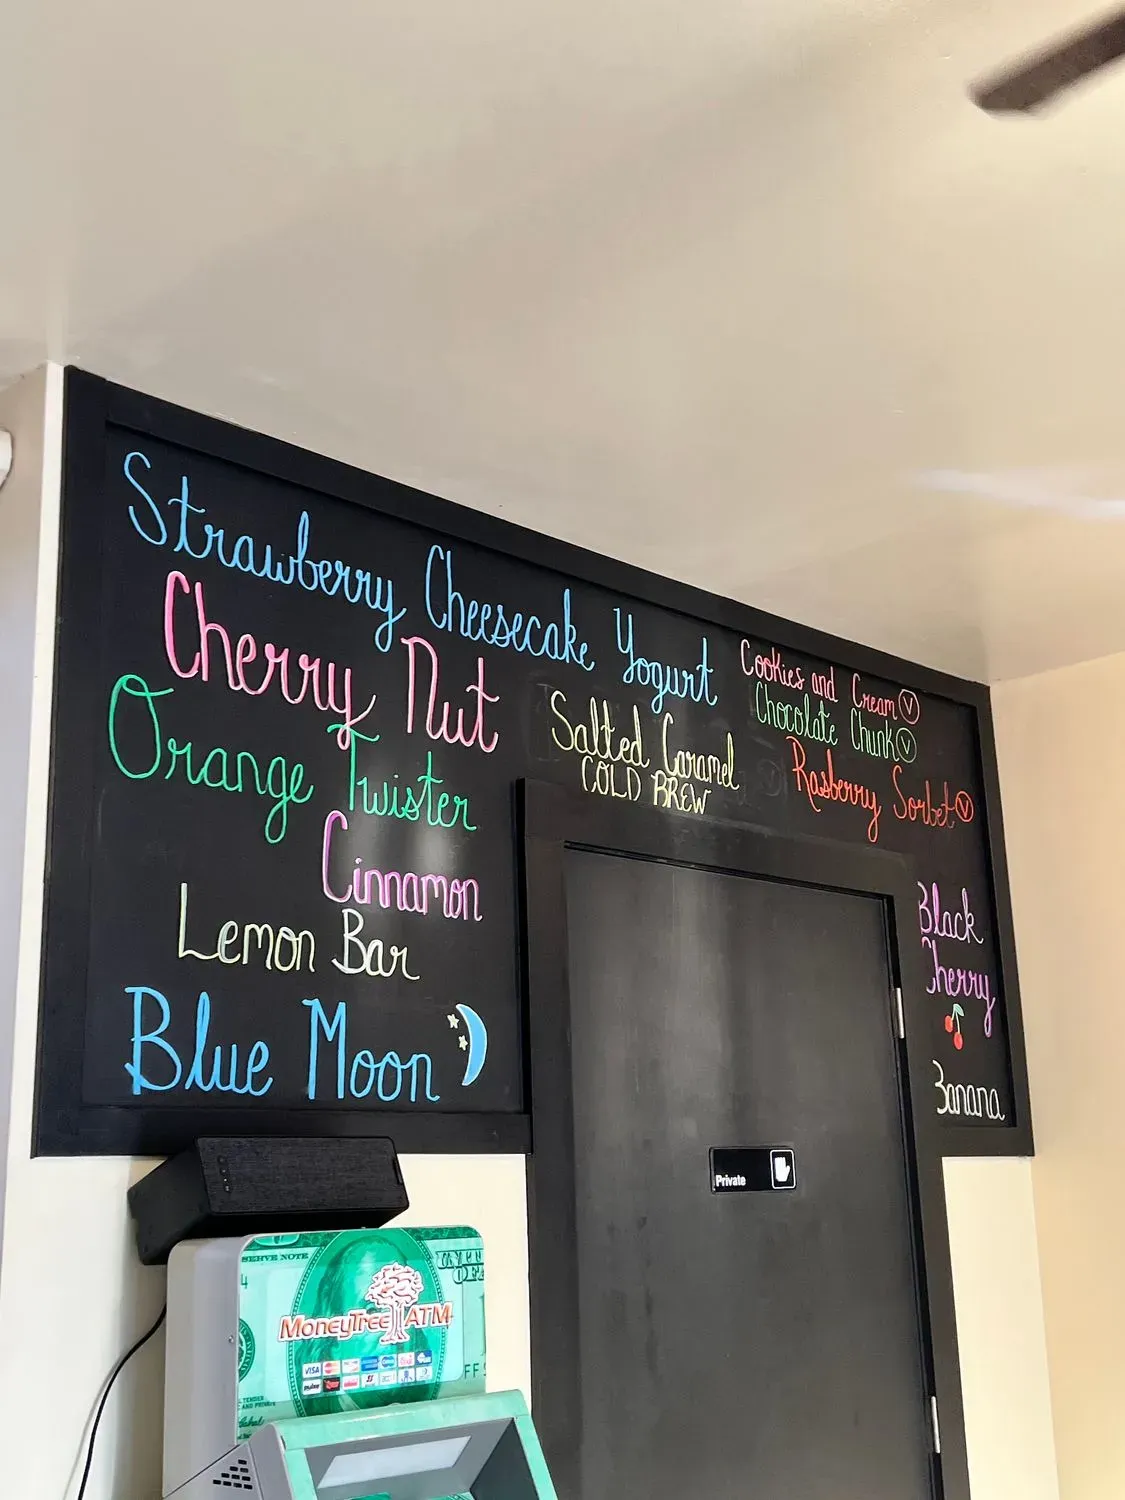 Strawberry Cheesecake Yogurt
Cherry Nut
Orange Twister
Cinnamon
Lemon Bar
Blue Moon
Salted Caramel
COLD BREW
Cookies and Cream V
Chocolate Chunk V
Rasberry Sorbet V
Black
Cherry
Banana
Private
SERVE NOTE
MoneyTree ATM
VISA
pulse